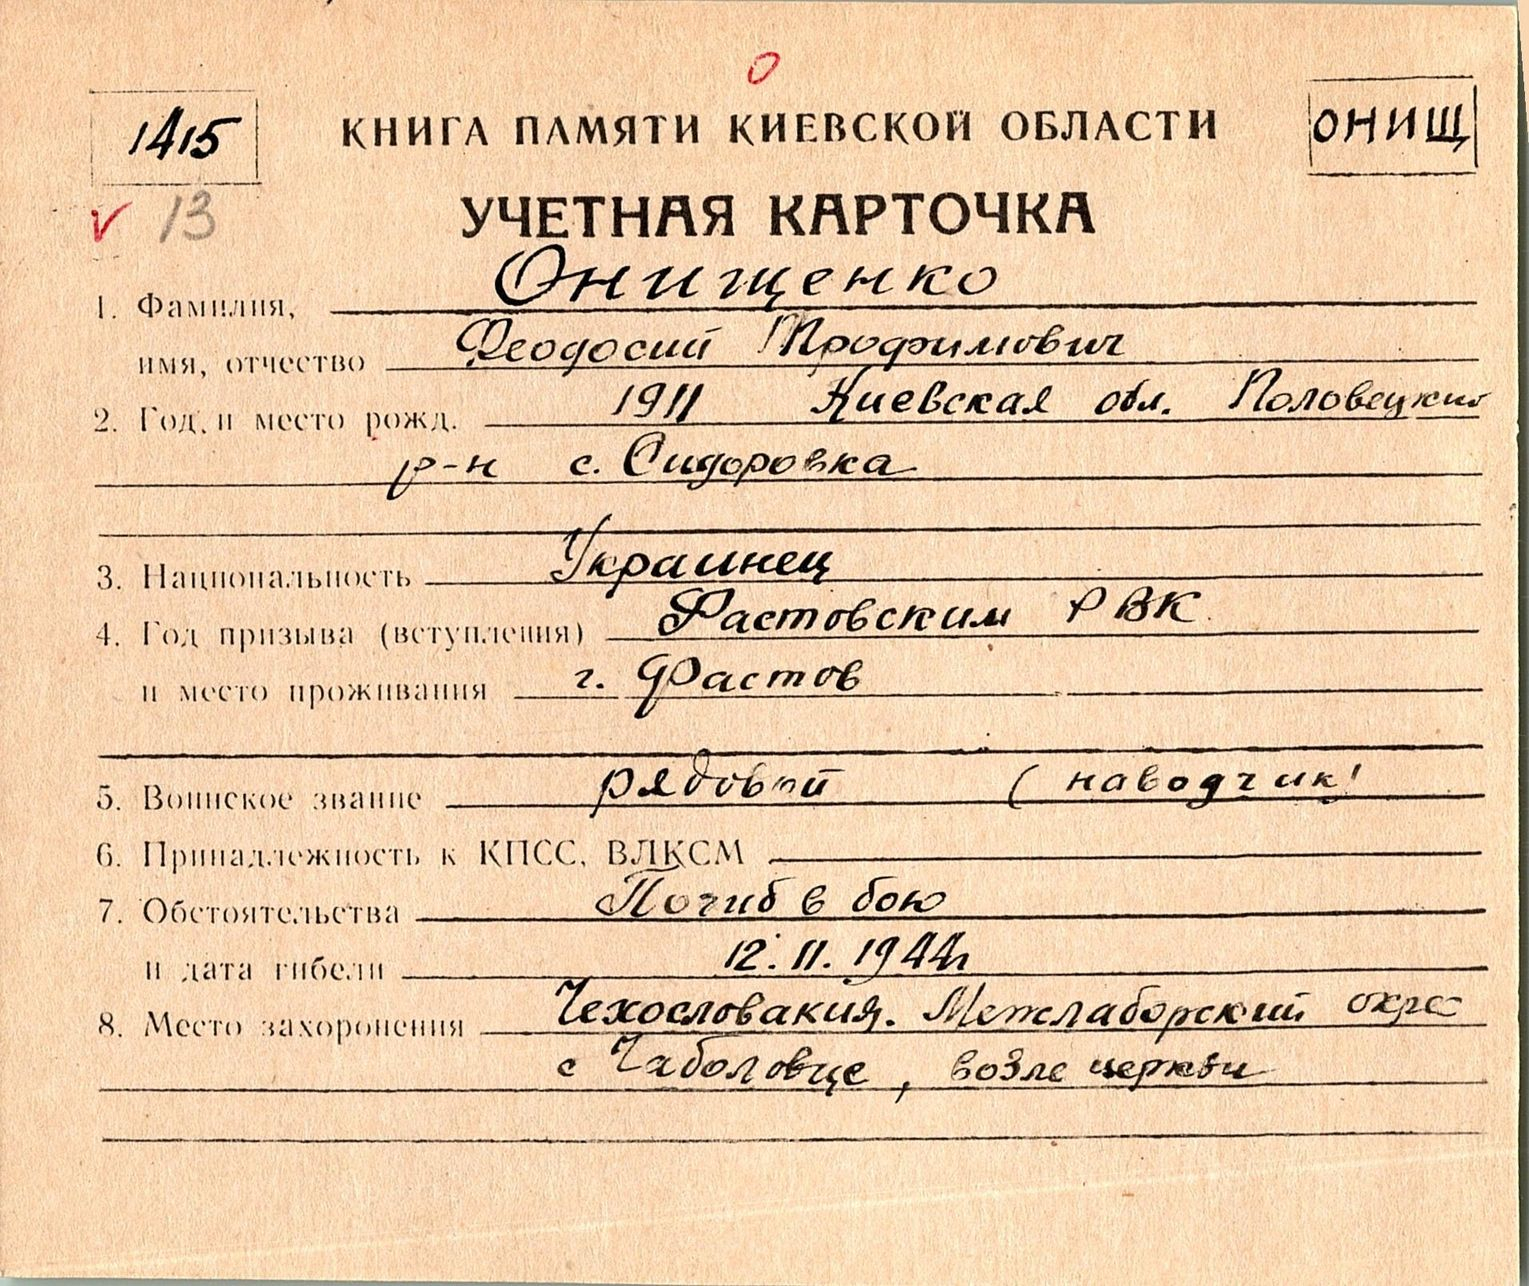 О
1415
КНИГА ПАМЯТИ КИЕВСКОЙ ОБЛАСТИ
ОНИЩ
V 13
УЧЕТНАЯ КАРТОЧКА
1. Фамилия, Онищенко
имя, отчество Феодосий Трофимович
2. Год и место рожд. 1911 Киевская обл. Половецкий
р-н с. Сидоровка
3. Национальность Украинец
4. Год призыва (вступления) Фастовским РВК
и место проживания г. Фастов
5. Воинское звание рядовой (наводчик)
6. Принадлежность к КПСС, ВЛКСМ
7. Обстоятельства Погиб в бою
и дата гибели 12.11.1944г
8. Место захоронения Чехословакия. Межлаборский окре
с Чаболовце, возле церкви